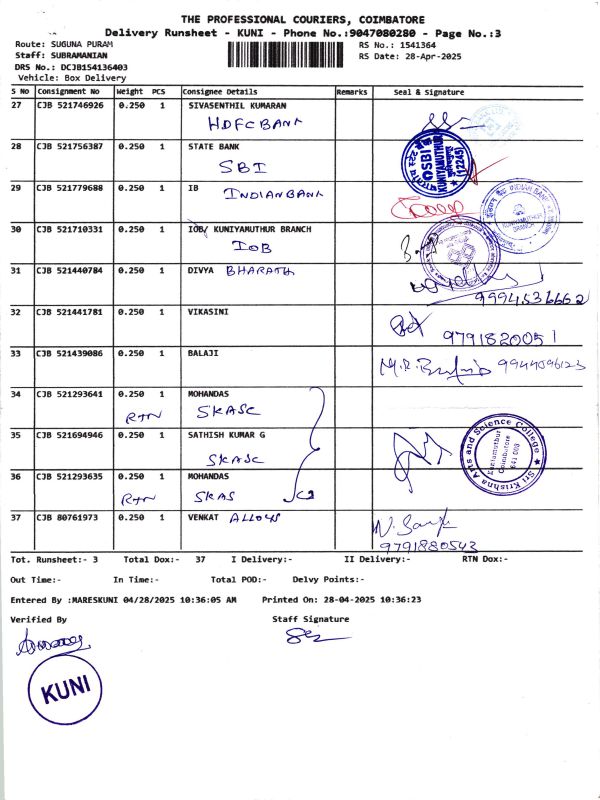 THE PROFESSIONAL COURIERS, COIMBATORE
Delivery Runsheet - KUNI - Phone No.:9047080280 - Page No.:3
Route: SUGUNA PURAM
RS No.: 1541364
Staff: SUBRAMANIAN
RS Date: 28-Apr-2025
DRS No.: DCJB154136403
Vehicle: Box Delivery
S No Consignment No Weight PCS Consignee Details Remarks Seal & Signature
27 CJB 521746926 0.250 1 SIVASENTHIL KUMARAN
HDFC BANK
28 CJB 521756387 0.250 1 STATE BANK
SBI
SBI
KUNIYAMUTHUR
(12245)
29 CJB 521779688 0.250 1 IB
INDIAN BANK
INDIAN BANK
KUNIAMUTHUR
BRANCH
30 CJB 521710331 0.250 1 IOB/ KUNIYAMUTHUR BRANCH
IOB
31 CJB 521440784 0.250 1 DIVYA BHARATH
9994536662
32 CJB 521441781 0.250 1 VIKASINI
9791820051
33 CJB 521439086 0.250 1 BALAJI
9944096123
34 CJB 521293641 0.250 1 MOHANDAS
RTN SKASC
35 CJB 521694946 0.250 1 SATHISH KUMAR G
SKASC
Sri Krishna Arts and Science College
Kuniamuthur
Coimbatore
641 008
36 CJB 521293635 0.250 1 MOHANDAS
RTN SKAS
37 CJB 80761973 0.250 1 VENKAT ALLOYS
9791880543
Tot. Runsheet:- 3 Total Dox:- 37 I Delivery:- II Delivery:- RTN Dox:-
Out Time:- In Time:- Total POD:- Delvy Points:-
Entered By :MARESKUNI 04/28/2025 10:36:05 AM Printed On: 28-04-2025 10:36:23
Verified By Staff Signature
KUNI